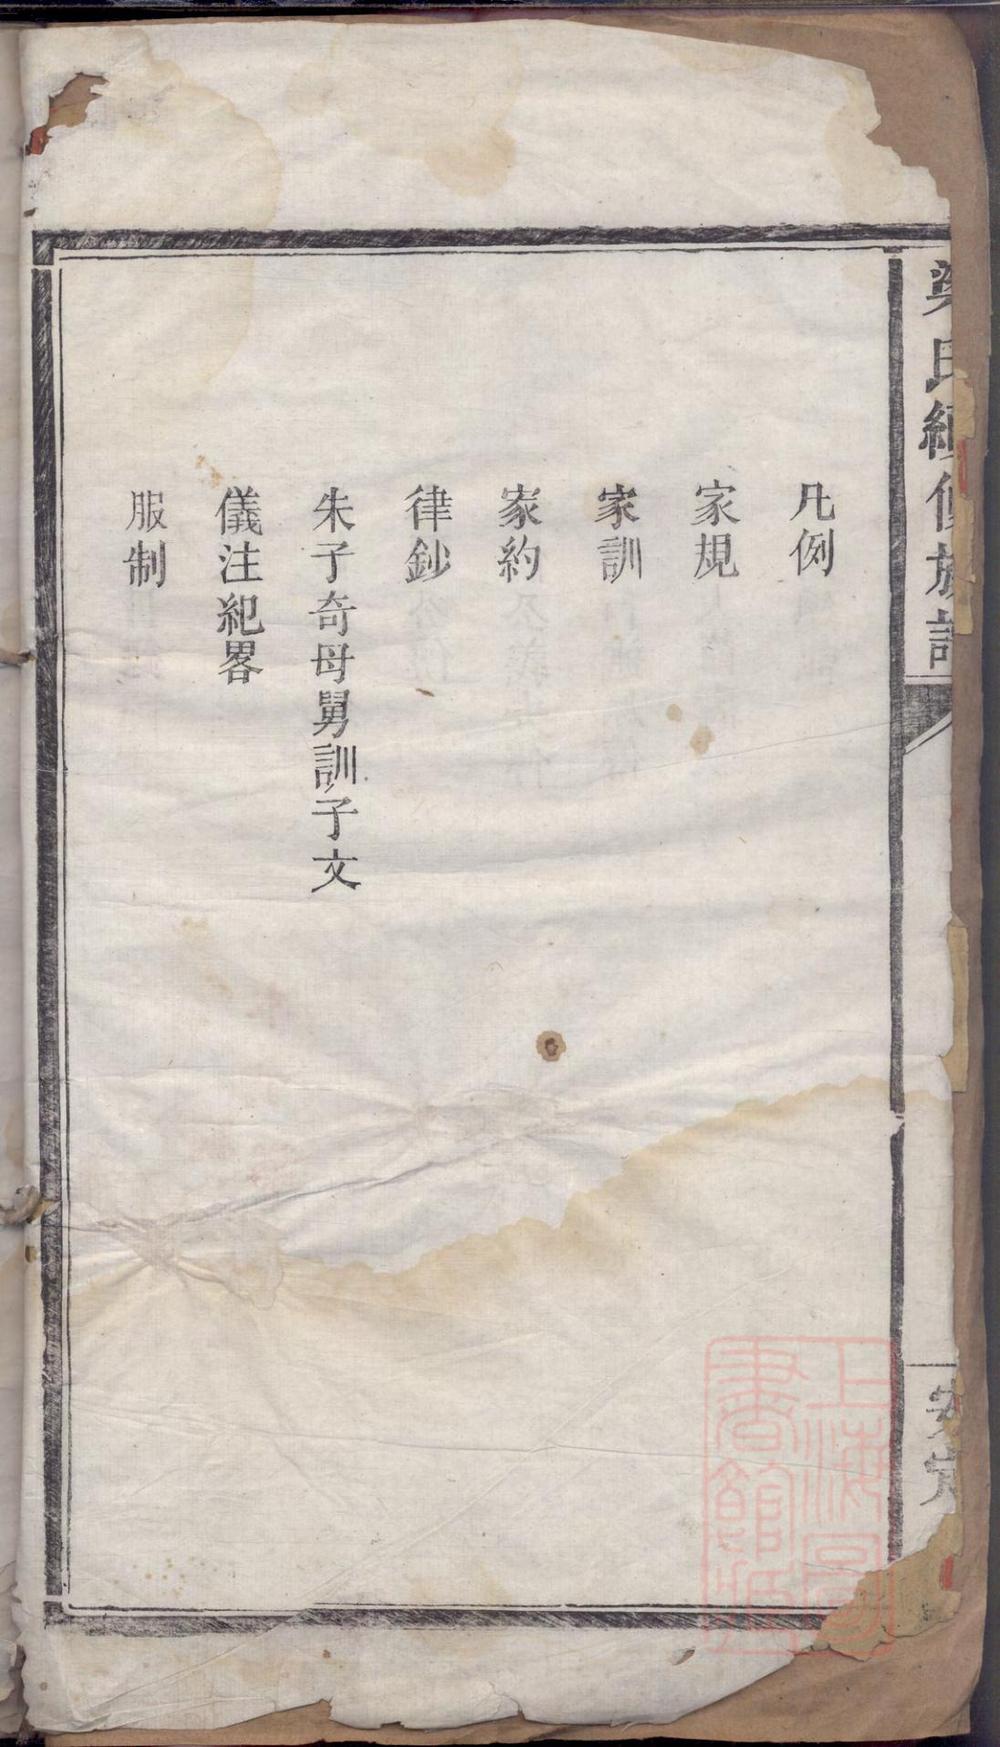 梁氏續修族譜
安定
凡例
家規
家訓
家約
律鈔
朱子奇母舅訓子文
儀注紀畧
服制
上海圖
書館藏